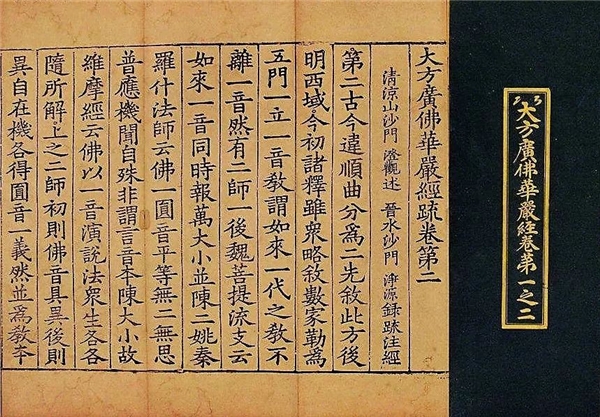 大方廣佛華嚴經疏卷第二
清涼山沙門 澄觀述 晉水沙門 淨源錄疏注經
第二古今違順曲分為二先敘此方後
明西域今初諸釋雖眾略敘數家勒為
五門一立一音教謂如來一代之教不
離一音然有二師一後魏菩提流支云
如來一音同時報萬大小並陳二姚秦
羅什法師云佛一圓音平等無二無思
普應機聞自殊非謂言音本陳大小故
維摩經云佛以一音演說法眾生各各
隨所解上之二師初則佛音具異後則
異自在機各得圓音一義然並為教本
大方廣佛華嚴經卷第一之二